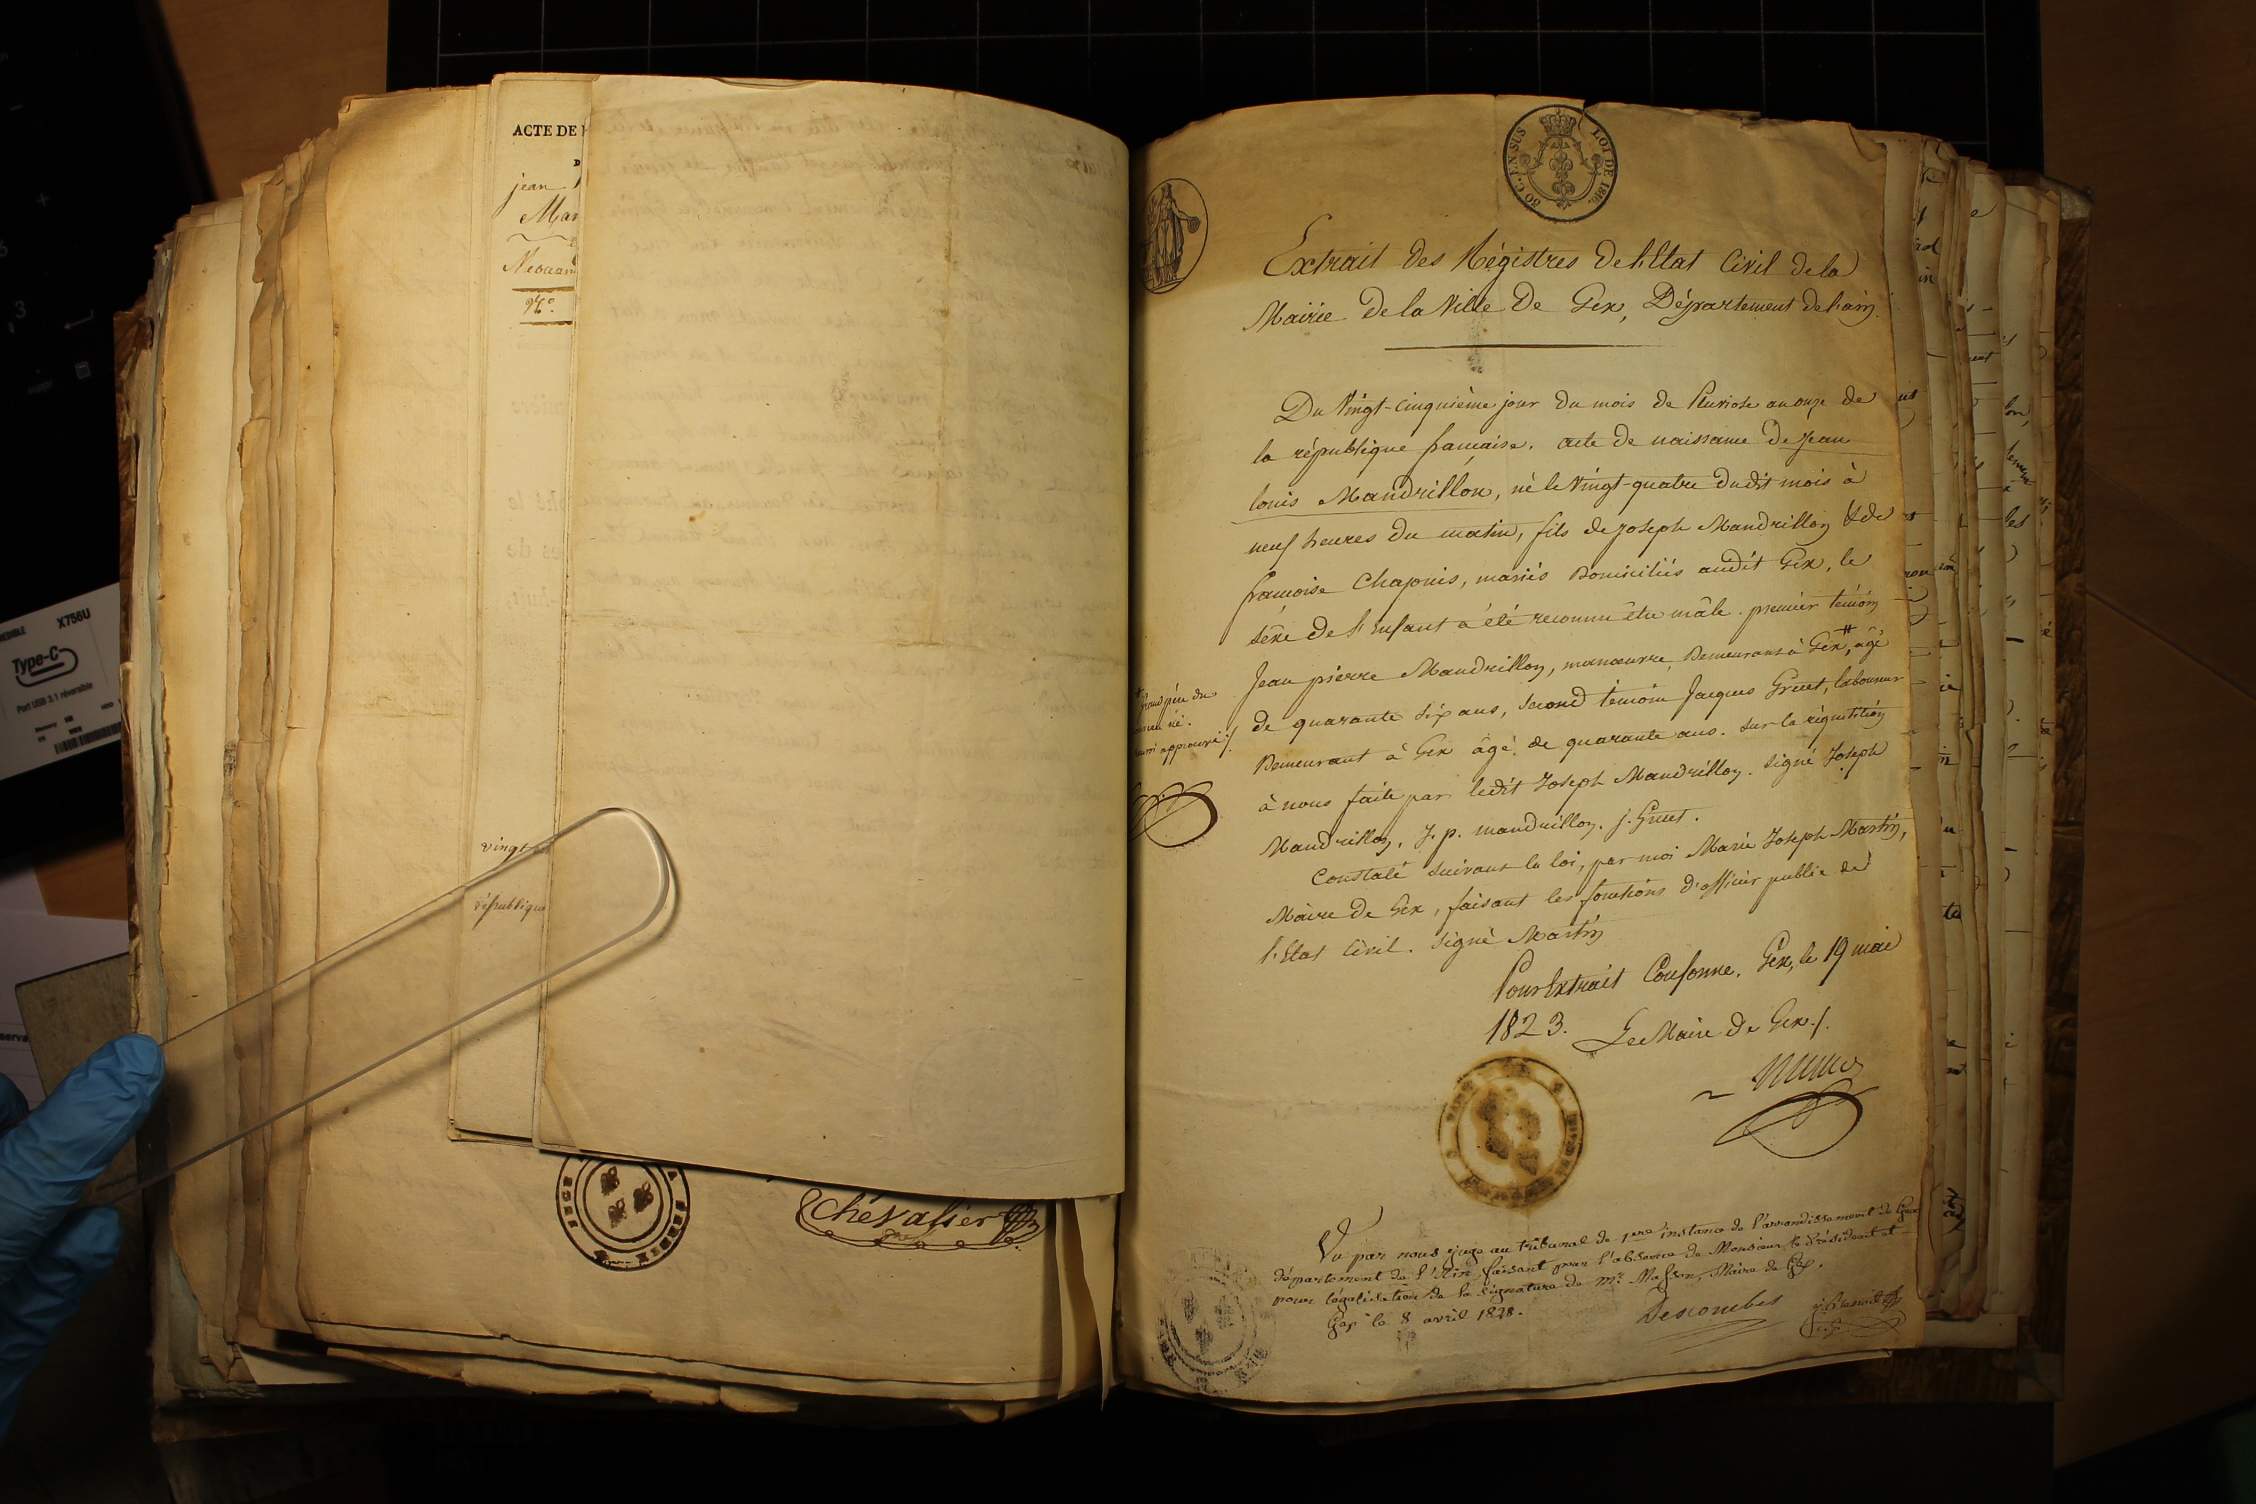 ACTE DE
jean
Mar
N°.
vingt
république
Chevalier
30 C. EN SUS
LOI DE 1816.
Extrait des Régistres de l'Etat Civil de la
Mairie de la Ville de Gex, Département de l'ain.
Du Vingt-cinquième jour du mois de Pluviose an onze de
la république française. acte de naissance de Jean
louis Mandrillon, né le Vingt-quatre dudit mois à
neuf heures du matin, fils de joseph Mandrillon & de
françoise Chaponis, mariés Domiciliés audit Gex, le
sèxe de l'Enfant a été reconnu être mâle. premier témoin
Jean pierre Mandrillon, manoeuvre, Demeurant à Gex,# âgé
de quarante six ans, second témoin Jacques Gruet, laboureur
Demeurant à Gex âgé de quarante ans. sur la réquisition
à nous faite par ledit Joseph Mandrillon. signé Joseph
Mandrillon, J. p. mandrillon. j. Gruet.
Constaté suivant la loi, par moi Marie Joseph Martin,
Maire de Gex, faisant les fonctions d'officier public de
l'Etat Civil. signé Martin
grand père du
nouveau né.
approuvé ./.
Pour Extrait Conforme. Gex, le 19 mai
1823. Le Maire de Gex ./.
Vu par nous juge au tribunal de 1ere instance de l'arrondissement de Gex
département de l'Ain faisant pour l'absence de Monsieur le Président et
pour légalisation de la signature de mr. Masson, Maire de Gex.
Gex le 8 avril 1828.
Descombes
X756U
Type-C
Port USB 3.1 réversible